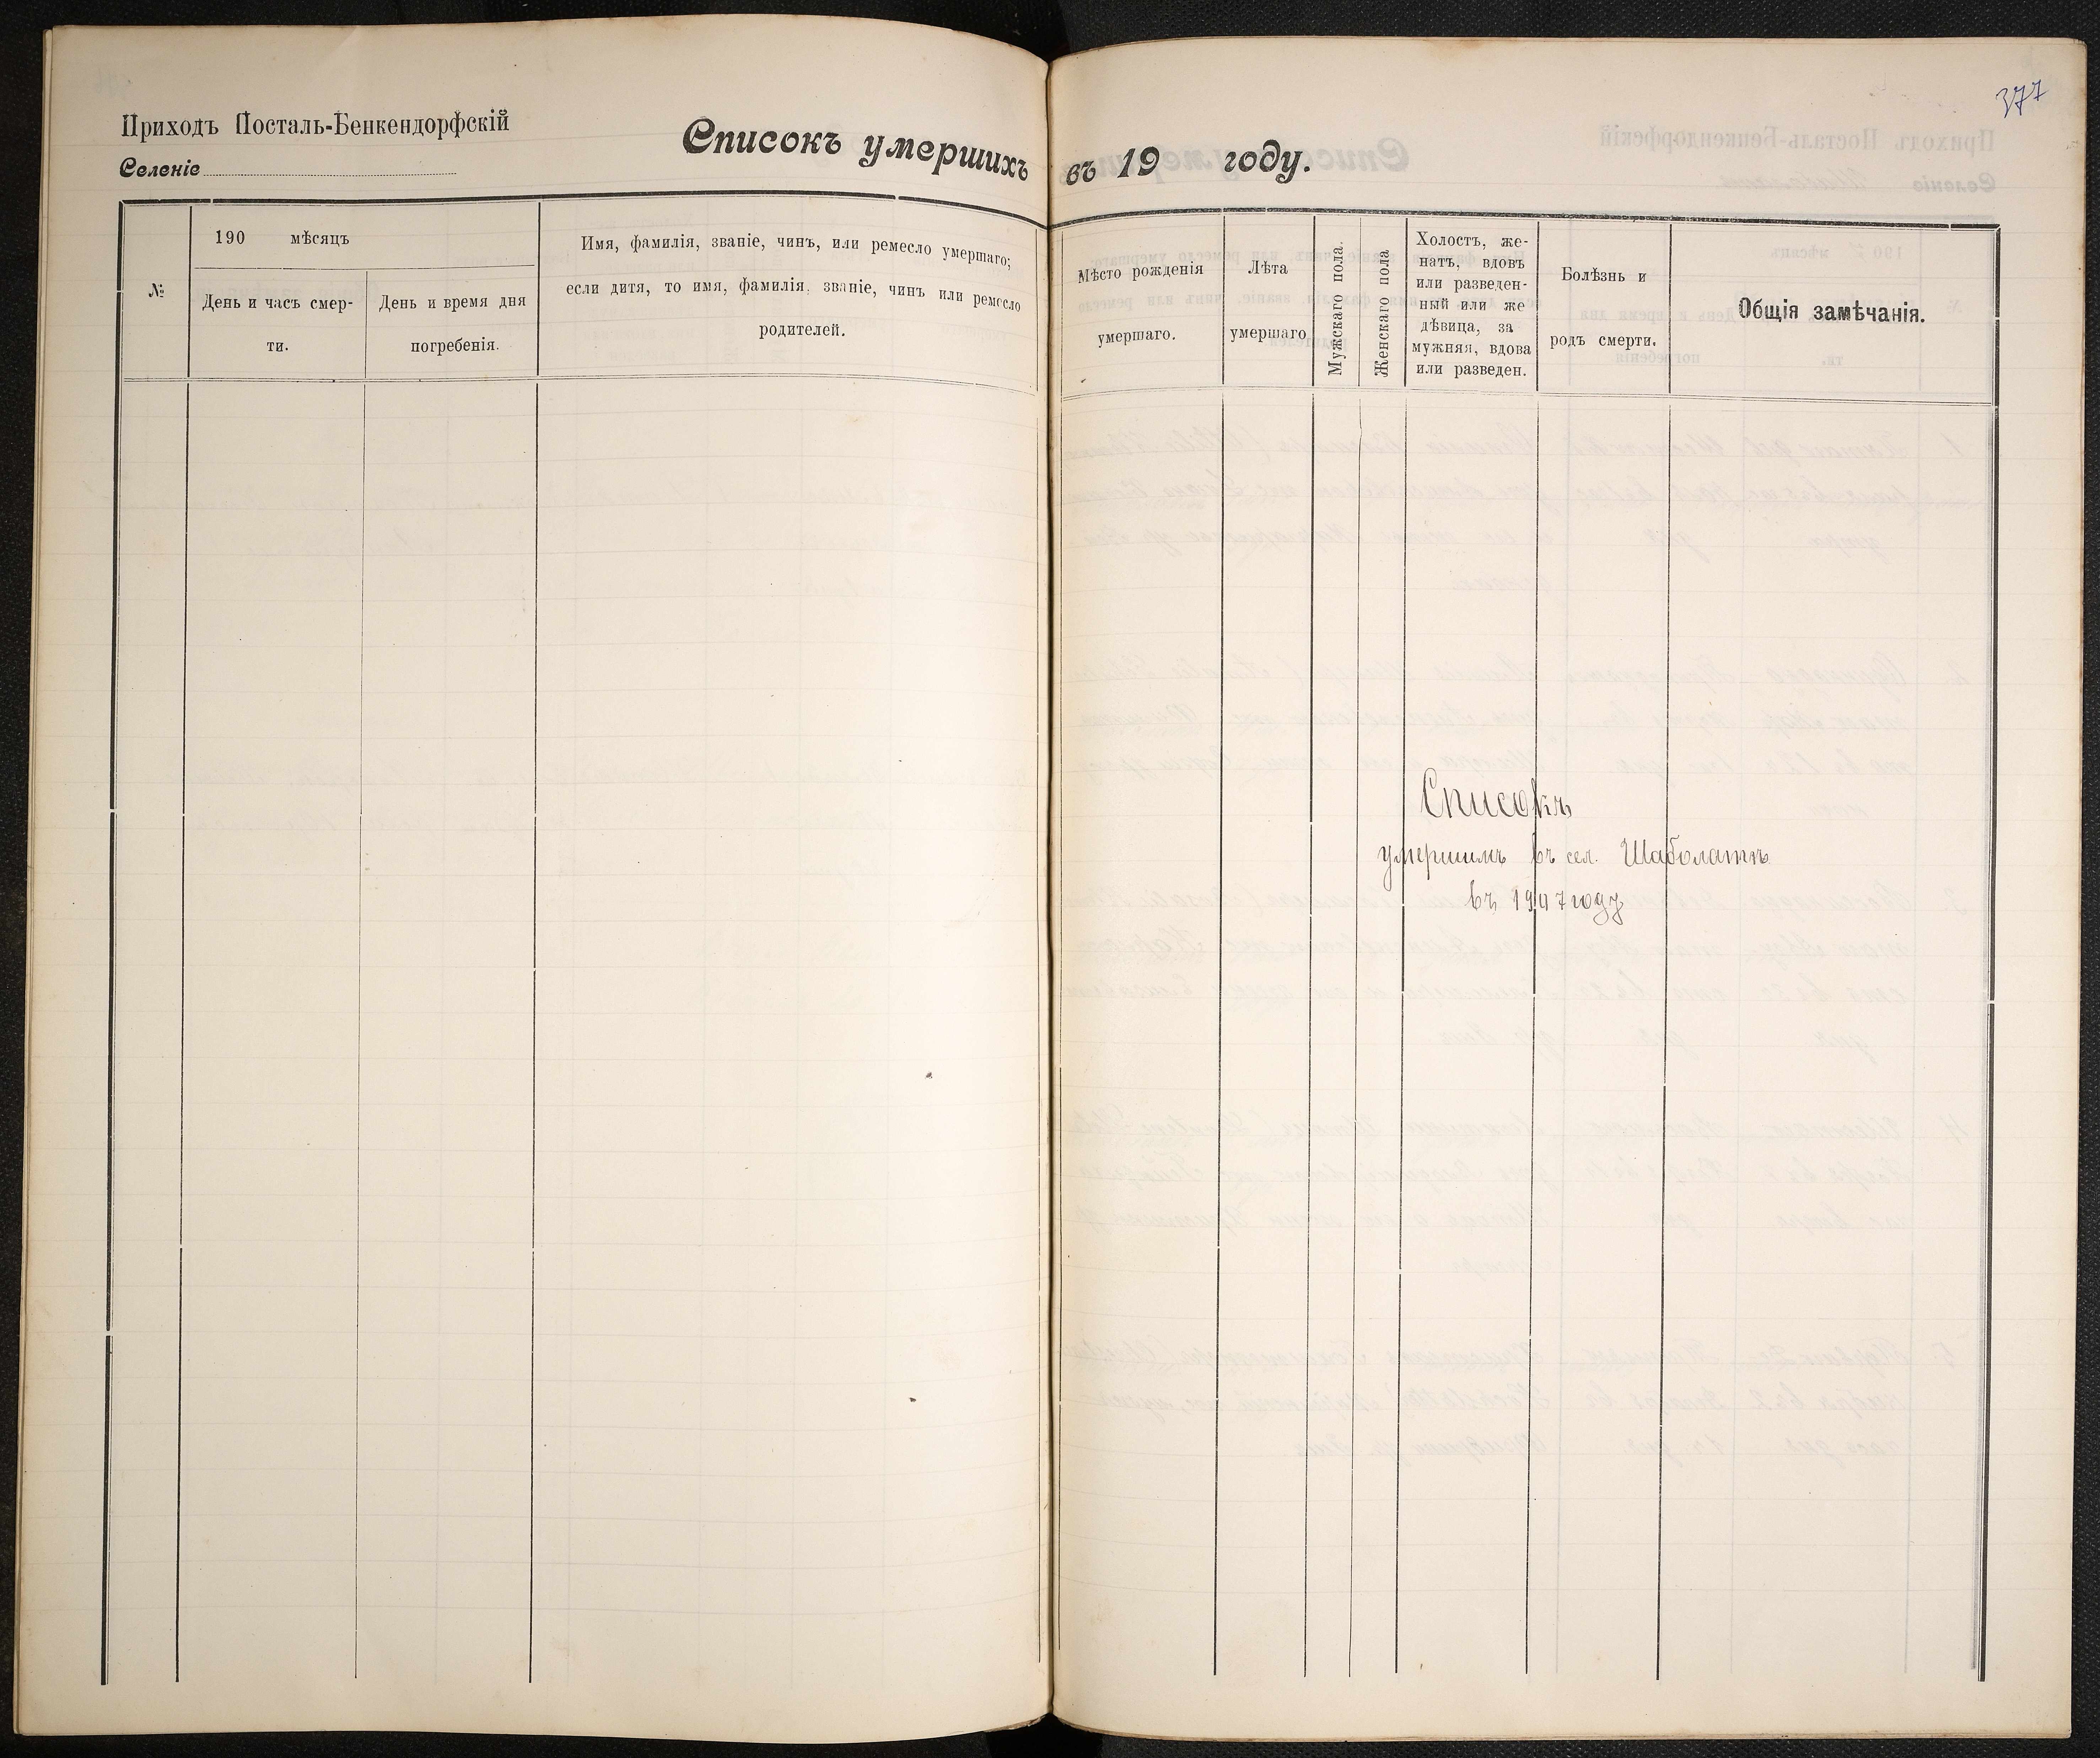 377
Приходъ Посталь-Бенкендорфскій
Селеніе
Списокъ умершихъ въ 19 году.
№
190 мѣсяцъ
День и часъ смер-
ти.
День и время дня
погребенія.
Имя, фамилія, званіе, чинъ, или ремесло умершаго;
если дитя, то имя, фамилія, званіе, чинъ или ремесло
родителей.
Мѣсто рожденія
умершаго.
Лѣта
умершаго
Мужскаго пола.
Женскаго пола
Холостъ, же-
натъ, вдовъ
или разведен-
ный или же
дѣвица, за
мужняя, вдова
или разведен.
Болѣзнь и
родъ смерти.
Общія замѣчанія.
Списокъ
умершимъ въ сел. Шаболатъ
въ 1907 году